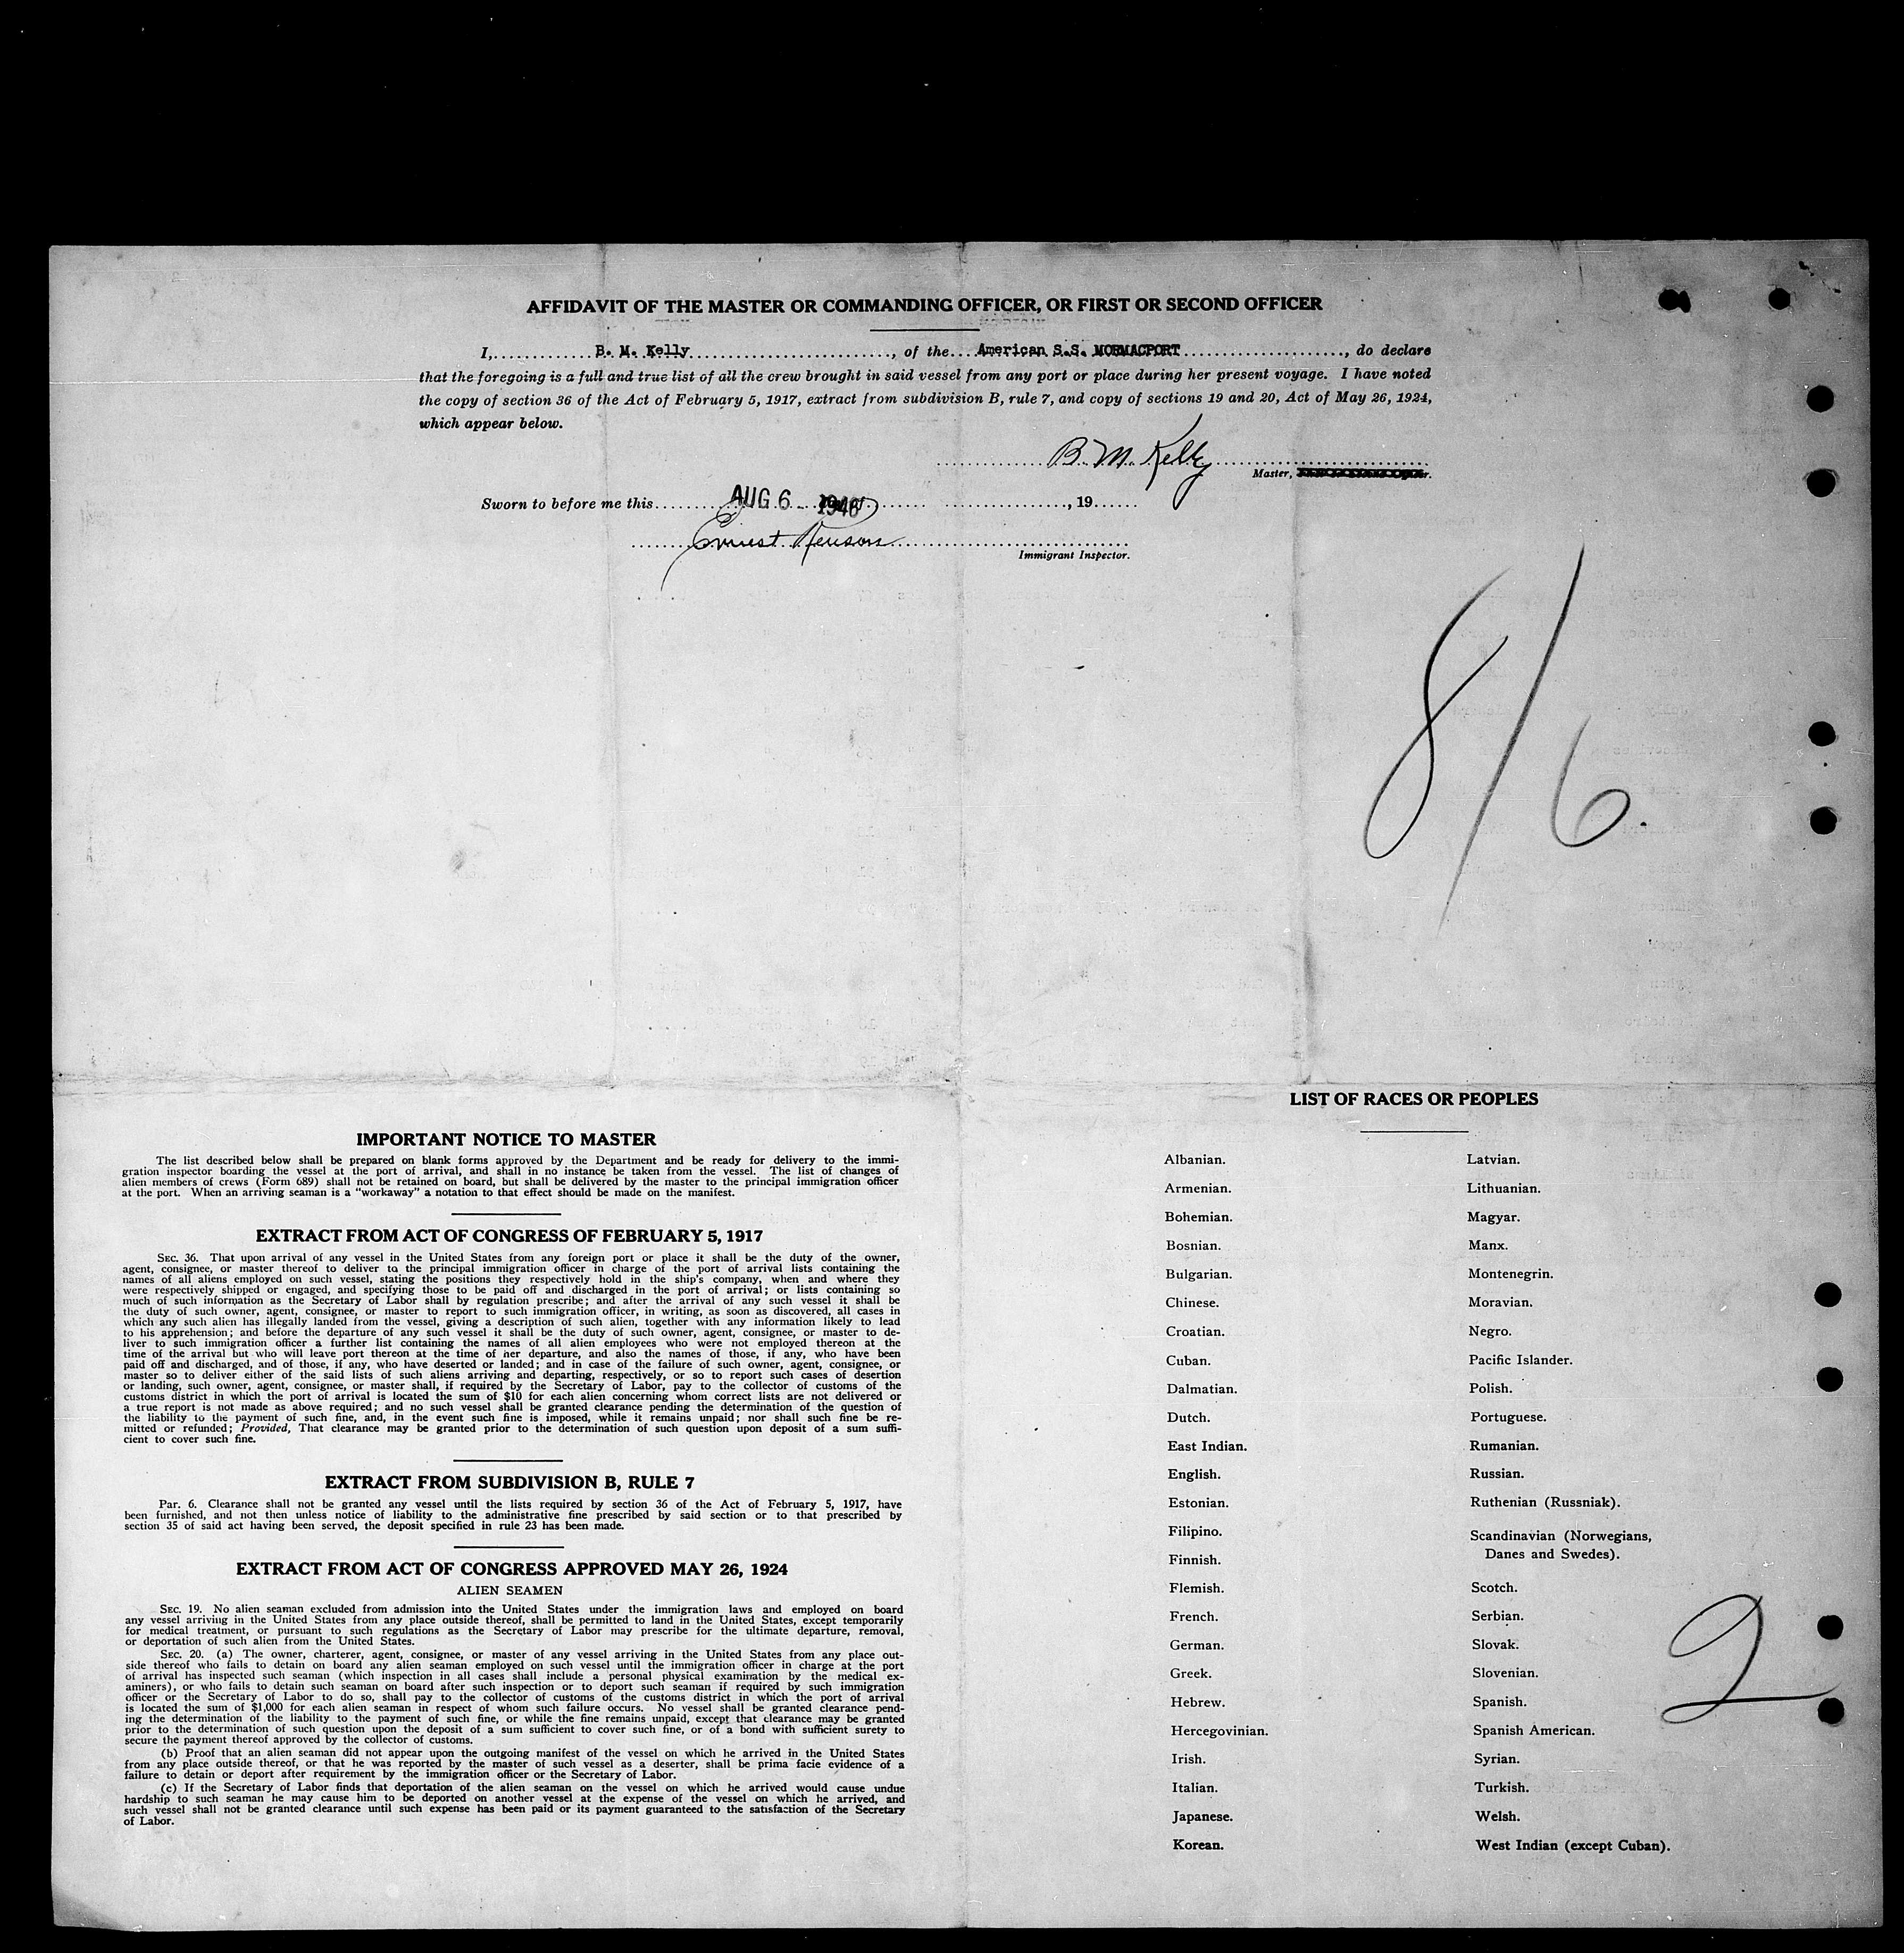 AFFIDAVIT OF THE MASTER OR COMMANDING OFFICER, OR FIRST OR SECOND OFFICER
I, B. M. Kelly, of the American S.S. MORMACPORT, do declare
that the foregoing is a full and true list of all the crew brought in said vessel from any port or place during her present voyage. I have noted
the copy of section 36 of the Act of February 5, 1917, extract from subdivision B, rule 7, and copy of sections 19 and 20, Act of May 26, 1924,
which appear below.
B. M. Kelly
Master,
Sworn to before me this AUG 6 - 1946, 19
Ernest
Immigrant Inspector.
8/6.
IMPORTANT NOTICE TO MASTER
The list described below shall be prepared on blank forms approved by the Department and be ready for delivery to the immi-
gration inspector boarding the vessel at the port of arrival, and shall in no instance be taken from the vessel. The list of changes of
alien members of crews (Form 689) shall not be retained on board, but shall be delivered by the master to the principal immigration officer
at the port. When an arriving seaman is a "workaway" a notation to that effect should be made on the manifest.
EXTRACT FROM ACT OF CONGRESS OF FEBRUARY 5, 1917
SEC. 36. That upon arrival of any vessel in the United States from any foreign port or place it shall be the duty of the owner,
agent, consignee, or master thereof to deliver to the principal immigration officer in charge of the port of arrival lists containing the
names of all aliens employed on such vessel, stating the positions they respectively hold in the ship's company, when and where they
were respectively shipped or engaged, and specifying those to be paid off and discharged in the port of arrival; or lists containing so
much of such information as the Secretary of Labor shall by regulation prescribe; and after the arrival of any such vessel it shall be
the duty of such owner, agent, consignee, or master to report to such immigration officer, in writing, as soon as discovered, all cases in
which any such alien has illegally landed from the vessel, giving a description of such alien, together with any information likely to lead
to his apprehension; and before the departure of any such vessel it shall be the duty of such owner, agent, consignee, or master to de-
liver to such immigration officer a further list containing the names of all alien employees who were not employed thereon at the
time of the arrival but who will leave port thereon at the time of her departure, and also the names of those, if any, who have been
paid off and discharged, and of those, if any, who have deserted or landed; and in case of the failure of such owner, agent, consignee, or
master so to deliver either of the said lists of such aliens arriving and departing, respectively, or so to report such cases of desertion
or landing, such owner, agent, consignee, or master shall, if required by the Secretary of Labor, pay to the collector of customs of the
customs district in which the port of arrival is located the sum of $10 for each alien concerning whom correct lists are not delivered or
a true report is not made as above required; and no such vessel shall be granted clearance pending the determination of the question of
the liability to the payment of such fine, and, in the event such fine is imposed, while it remains unpaid; nor shall such fine be re-
mitted or refunded; Provided, That clearance may be granted prior to the determination of such question upon deposit of a sum suffi-
cient to cover such fine.
EXTRACT FROM SUBDIVISION B, RULE 7
Par. 6. Clearance shall not be granted any vessel until the lists required by section 36 of the Act of February 5, 1917, have
been furnished, and not then unless notice of liability to the administrative fine prescribed by said section or to that prescribed by
section 35 of said act having been served, the deposit specified in rule 23 has been made.
EXTRACT FROM ACT OF CONGRESS APPROVED MAY 26, 1924
ALIEN SEAMEN
SEC. 19. No alien seaman excluded from admission into the United States under the immigration laws and employed on board
any vessel arriving in the United States from any place outside thereof, shall be permitted to land in the United States, except temporarily
for medical treatment, or pursuant to such regulations as the Secretary of Labor may prescribe for the ultimate departure, removal,
or deportation of such alien from the United States.
SEC. 20. (a) The owner, charterer, agent, consignee, or master of any vessel arriving in the United States from any place out-
side thereof who fails to detain on board any alien seaman employed on such vessel until the immigration officer in charge at the port
of arrival has inspected such seaman (which inspection in all cases shall include a personal physical examination by the medical ex-
aminers), or who fails to detain such seaman on board after such inspection or to deport such seaman if required by such immigration
officer or the Secretary of Labor to do so, shall pay to the collector of customs of the customs district in which the port of arrival
is located the sum of $1,000 for each alien seaman in respect of whom such failure occurs. No vessel shall be granted clearance pend-
ing the determination of the liability to the payment of such fine, or while the fine remains unpaid, except that clearance may be granted
prior to the determination of such question upon the deposit of a sum sufficient to cover such fine, or of a bond with sufficient surety to
secure the payment thereof approved by the collector of customs.
(b) Proof that an alien seaman did not appear upon the outgoing manifest of the vessel on which he arrived in the United States
from any place outside thereof, or that he was reported by the master of such vessel as a deserter, shall be prima facie evidence of a
failure to detain or deport after requirement by the immigration officer or the Secretary of Labor.
(c) If the Secretary of Labor finds that deportation of the alien seaman on the vessel on which he arrived would cause undue
hardship to such seaman he may cause him to be deported on another vessel at the expense of the vessel on which he arrived, and
such vessel shall not be granted clearance until such expense has been paid or its payment guaranteed to the satisfaction of the Secretary
of Labor.
LIST OF RACES OR PEOPLES
Albanian.
Armenian.
Bohemian.
Bosnian.
Bulgarian.
Chinese.
Croatian.
Cuban.
Dalmatian.
Dutch.
East Indian.
English.
Estonian.
Filipino.
Finnish.
Flemish.
French.
German.
Greek.
Hebrew.
Hercegovinian.
Irish.
Italian.
Japanese.
Korean.
Latvian.
Lithuanian.
Magyar.
Manx.
Montenegrin.
Moravian.
Negro.
Pacific Islander.
Polish.
Portuguese.
Rumanian.
Russian.
Ruthenian (Russniak).
Scandinavian (Norwegians,
Danes and Swedes).
Scotch.
Serbian.
Slovak.
Slovenian.
Spanish.
Spanish American.
Syrian.
Turkish.
Welsh.
West Indian (except Cuban).
2